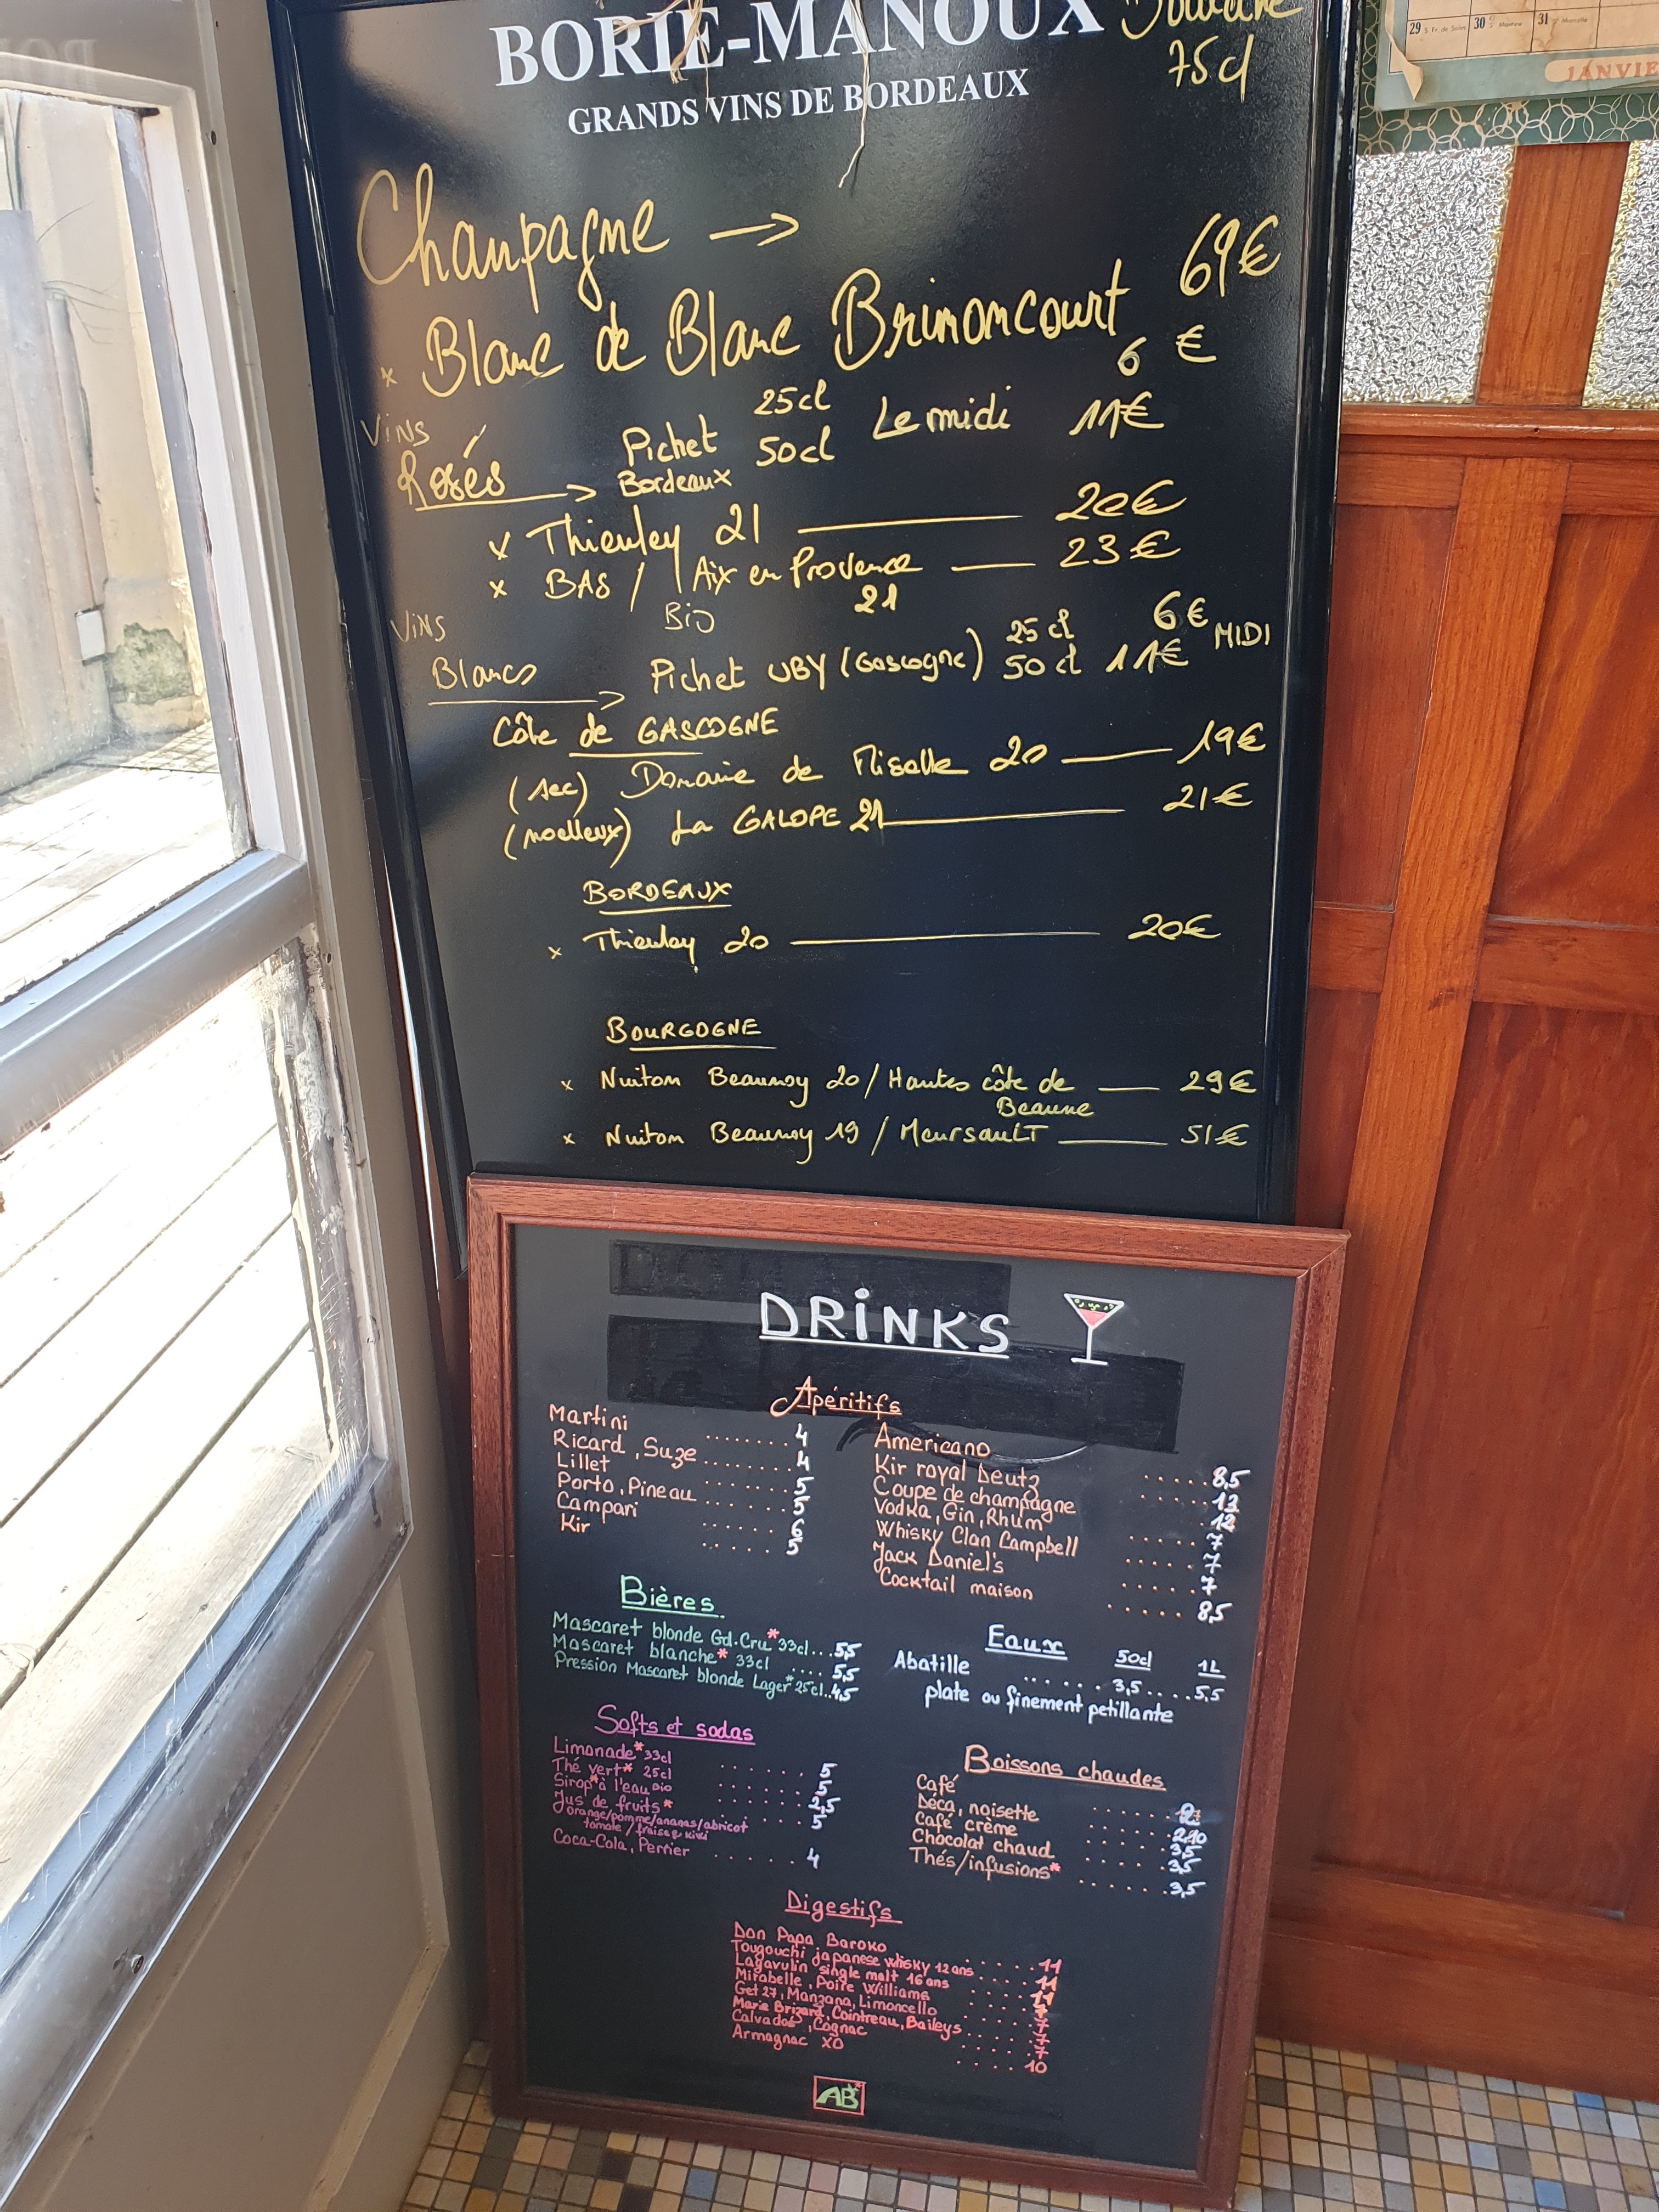 BORIE-MANOUX
75cl
GRANDS VINS DE BORDEAUX
29 S. Fr. de Sales 30 Ste Martine 31 Ste Marcelle
JANVIE
Champagne →
69€
x Blanc de Blanc Brimoncourt
Vins
Rosés → Pichet 25cl Le midi 6 €
50cl 11€
Bordeaux
x Thieuley 21 20€
x BAS / Aix en Provence 21 23€
Bio
Vins
Blancs → Pichet UBY (Gascogne) 25 cl 6€ MIDI
50 cl 11€
Côte de GASCOGNE
(sec) Domaine de Miselle 20 19€
(moelleux) La GALOPE 21 21€
BORDEAUX
x Thieuley 20 20€
BOURGOGNE
x Nuiton Beaunoy 20 / Hautes côte de Beaune 29€
x Nuiton Beaunoy 19 / Meursault 51€
DRiNKS
Apéritifs
Martini ........ 4
Ricard, Suze ........ 4
Lillet ...... 5
Porto, Pineau ...... 5
Campari ...... 6
Kir ...... 5
Americano ..... 8,5
Kir royal Deutz ..... 13
Coupe de champagne 12
Vodka, Gin, Rhum ..... 7
Whisky Clan Campbell ..... 7
Jack Daniel's ..... 7
Cocktail maison ..... 8,5
Bières
Mascaret blonde Gd.Cru* 33cl... 5,5
Mascaret blanche* 33cl .... 5,5
Pression Mascaret blonde Lager* 25cl.. 4,5
Eaux 50cl 1L
Abatille ...... 3,5 .... 5,5
plate ou finement petillante
Softs et sodas
Limonade* 33cl ...... 5
Thé vert* 25cl ...... 5
Sirop* à l'eau bio ...... 2,5
Jus de fruits* ... 5
orange/pomme/ananas/abricot
tomate / fraise & kiwi
Coca-Cola, Perrier ...... 4
Boissons chaudes
Café ......
Déca, noisette ......
Café crème ..... 3,5
Chocolat chaud ..... 3,5
Thés/infusions* ...... 3,5
Digestifs
Don Papa Baroko ..... 11
Tougouchi japanese whisky 12 ans .... 11
Lagavulin single malt 16 ans .... 11
Mirabelle, Poire Williams .... 7
Get 27, Manzana, Limoncello .... 7
Marie Brizard, Cointreau, Baileys .... 7
Calvados, Cognac ..... 7
Armagnac XO .... 10
AB*